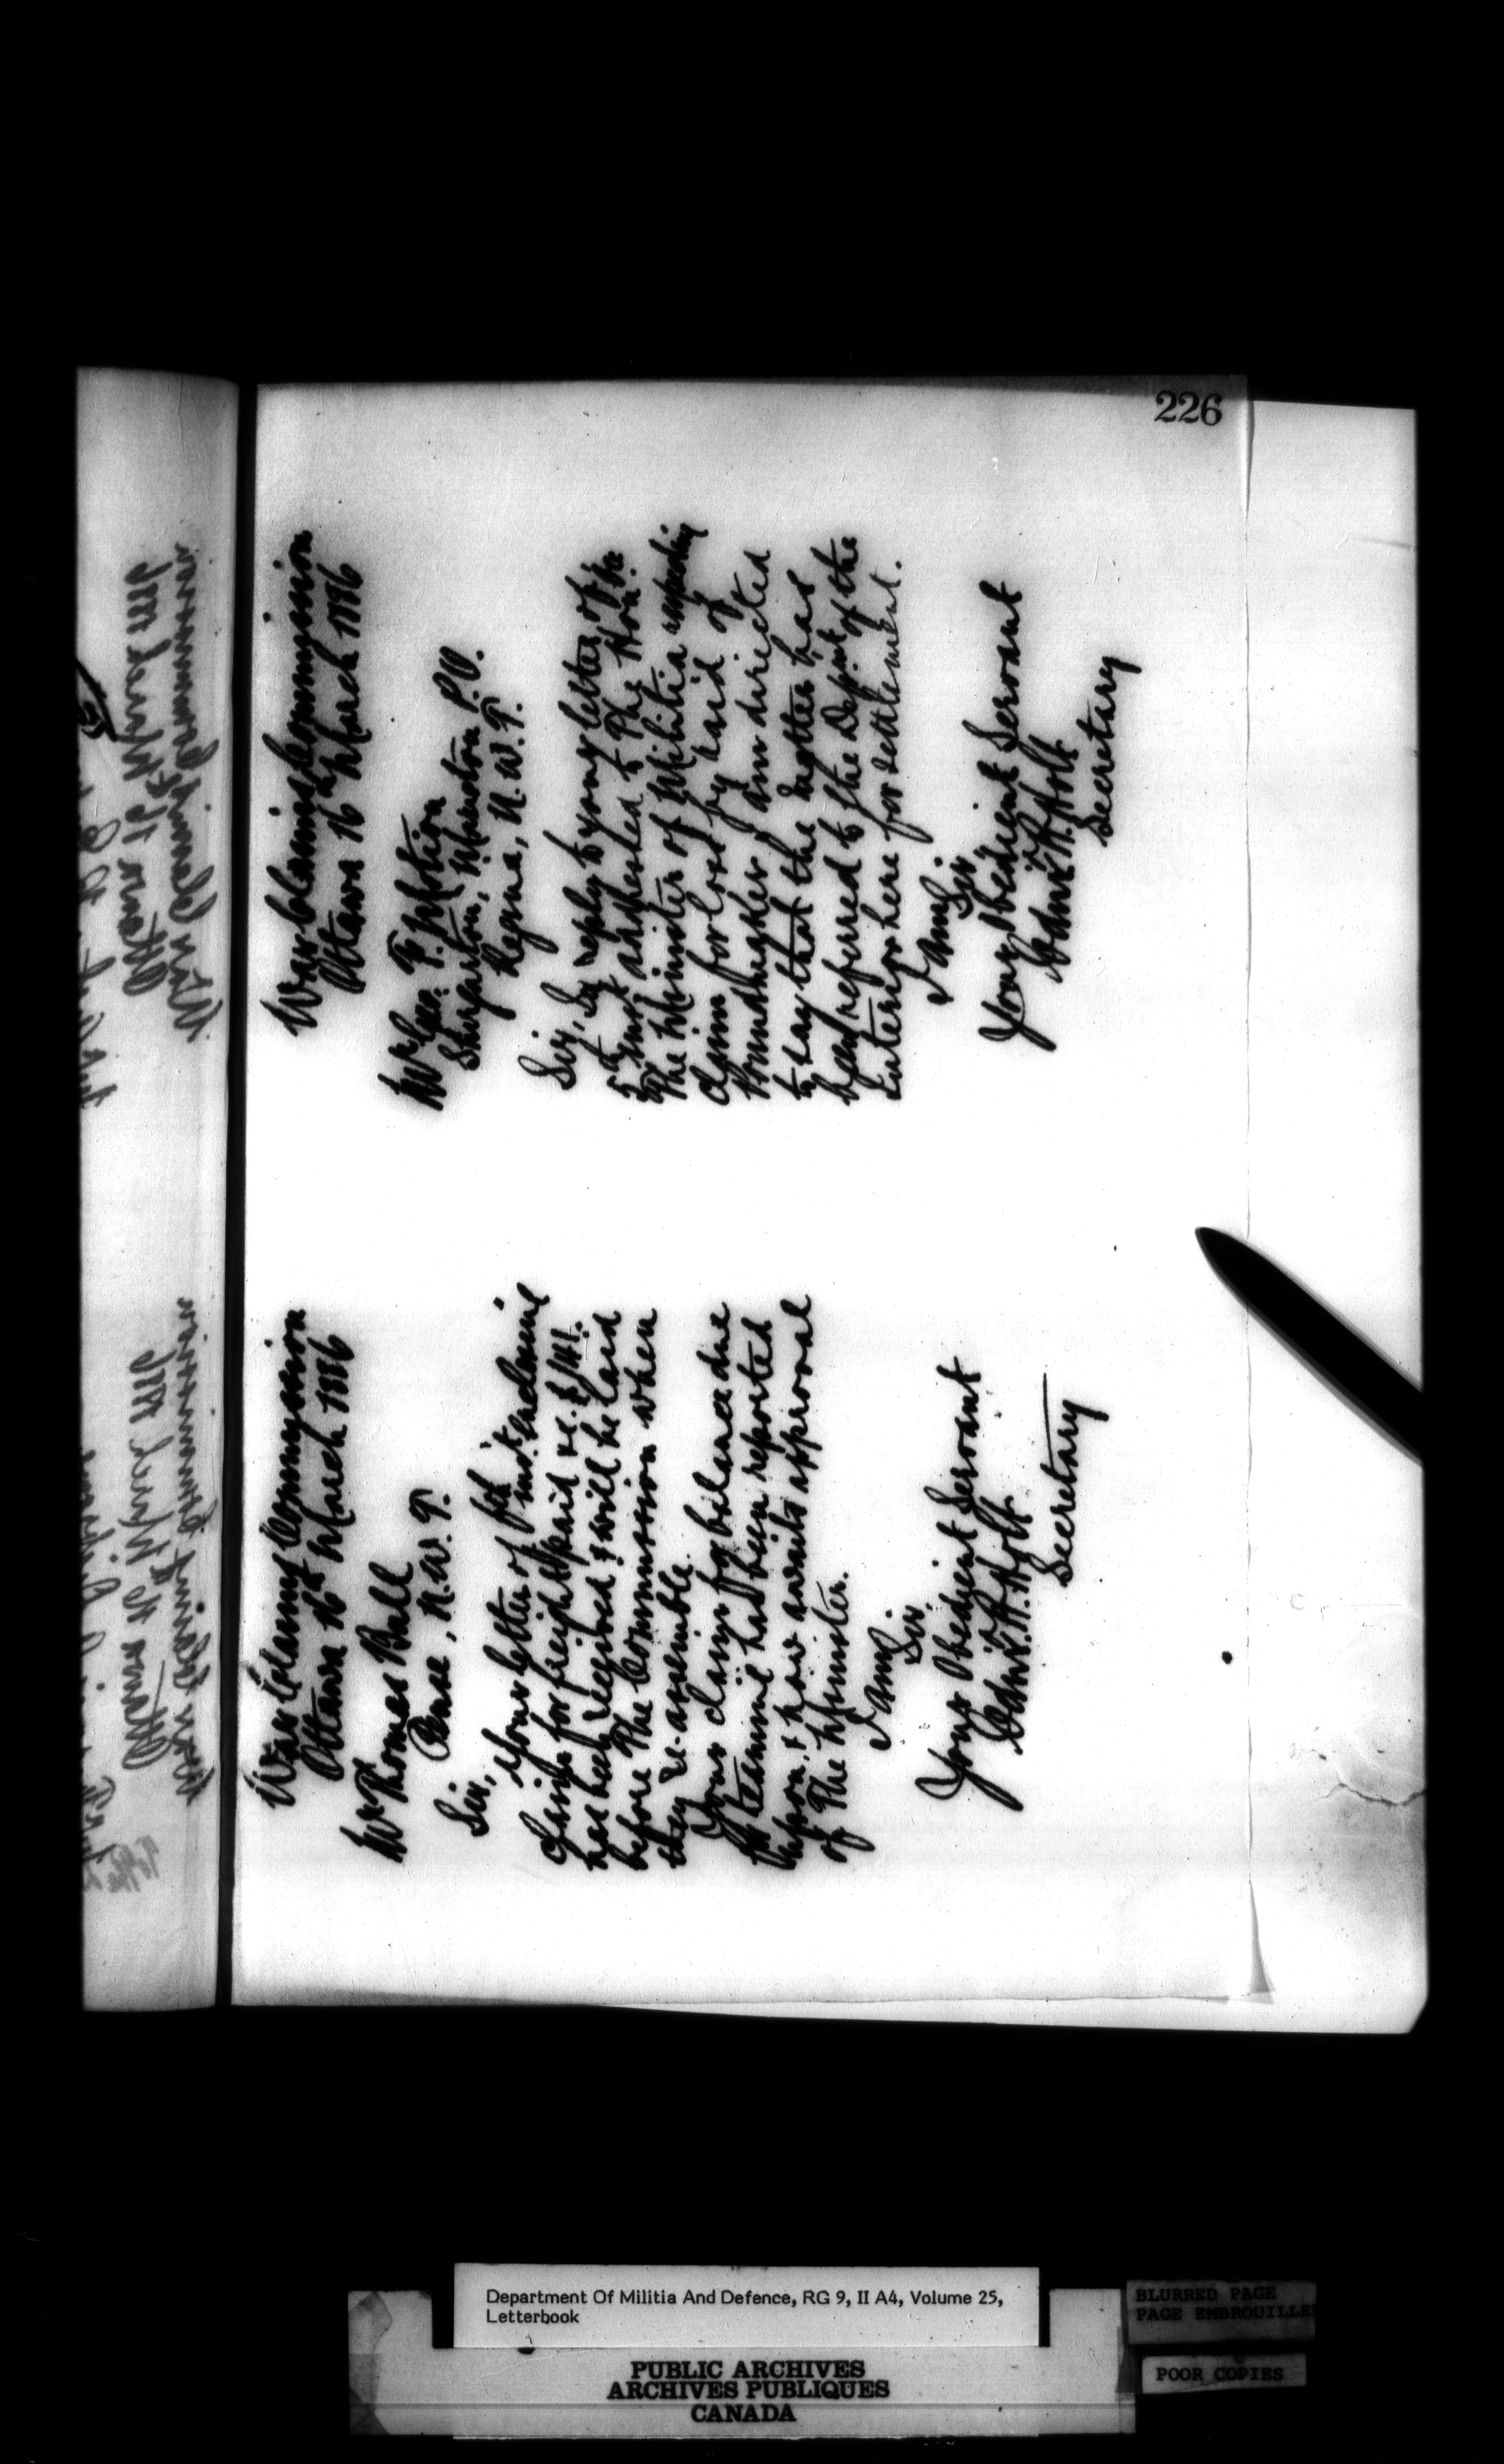 226
War Claims Commission
Ottawa 16th March 1886
Mr Thomas Ball
Pense, N.W.T.
Sir,
Your letter of 5th inst. enclosing
claim for freight paid &c. $141.
has been received & will be laid
before The Commission when
they re-assemble.
Your claim for balance due
for teaming has been reported
upon, & now awaits approval
of The Minister.
I am,
Sir
Your Obedient Servant
Secretary
War Claims Commission
Ottawa 16th March 1886
Mr Geo. F. Motion
P.O.
Regina, N.W.T.
Sir, In reply to your letter of the
5th inst addressed to The Hon.
The Minister of Militia respecting
claim for loss by raid of
Poundmaker I am directed
to say that the matter has
been referred to the Depart of the
Interior here for settlement.
I am,
Sir
Your Obedient Servant
Secretary
Department Of Militia And Defence, RG 9, II A4, Volume 25,
Letterbook
PUBLIC ARCHIVES
ARCHIVES PUBLIQUES
CANADA
BLURRED PAGE
PAGE EMBROUILLEE
POOR COPIES